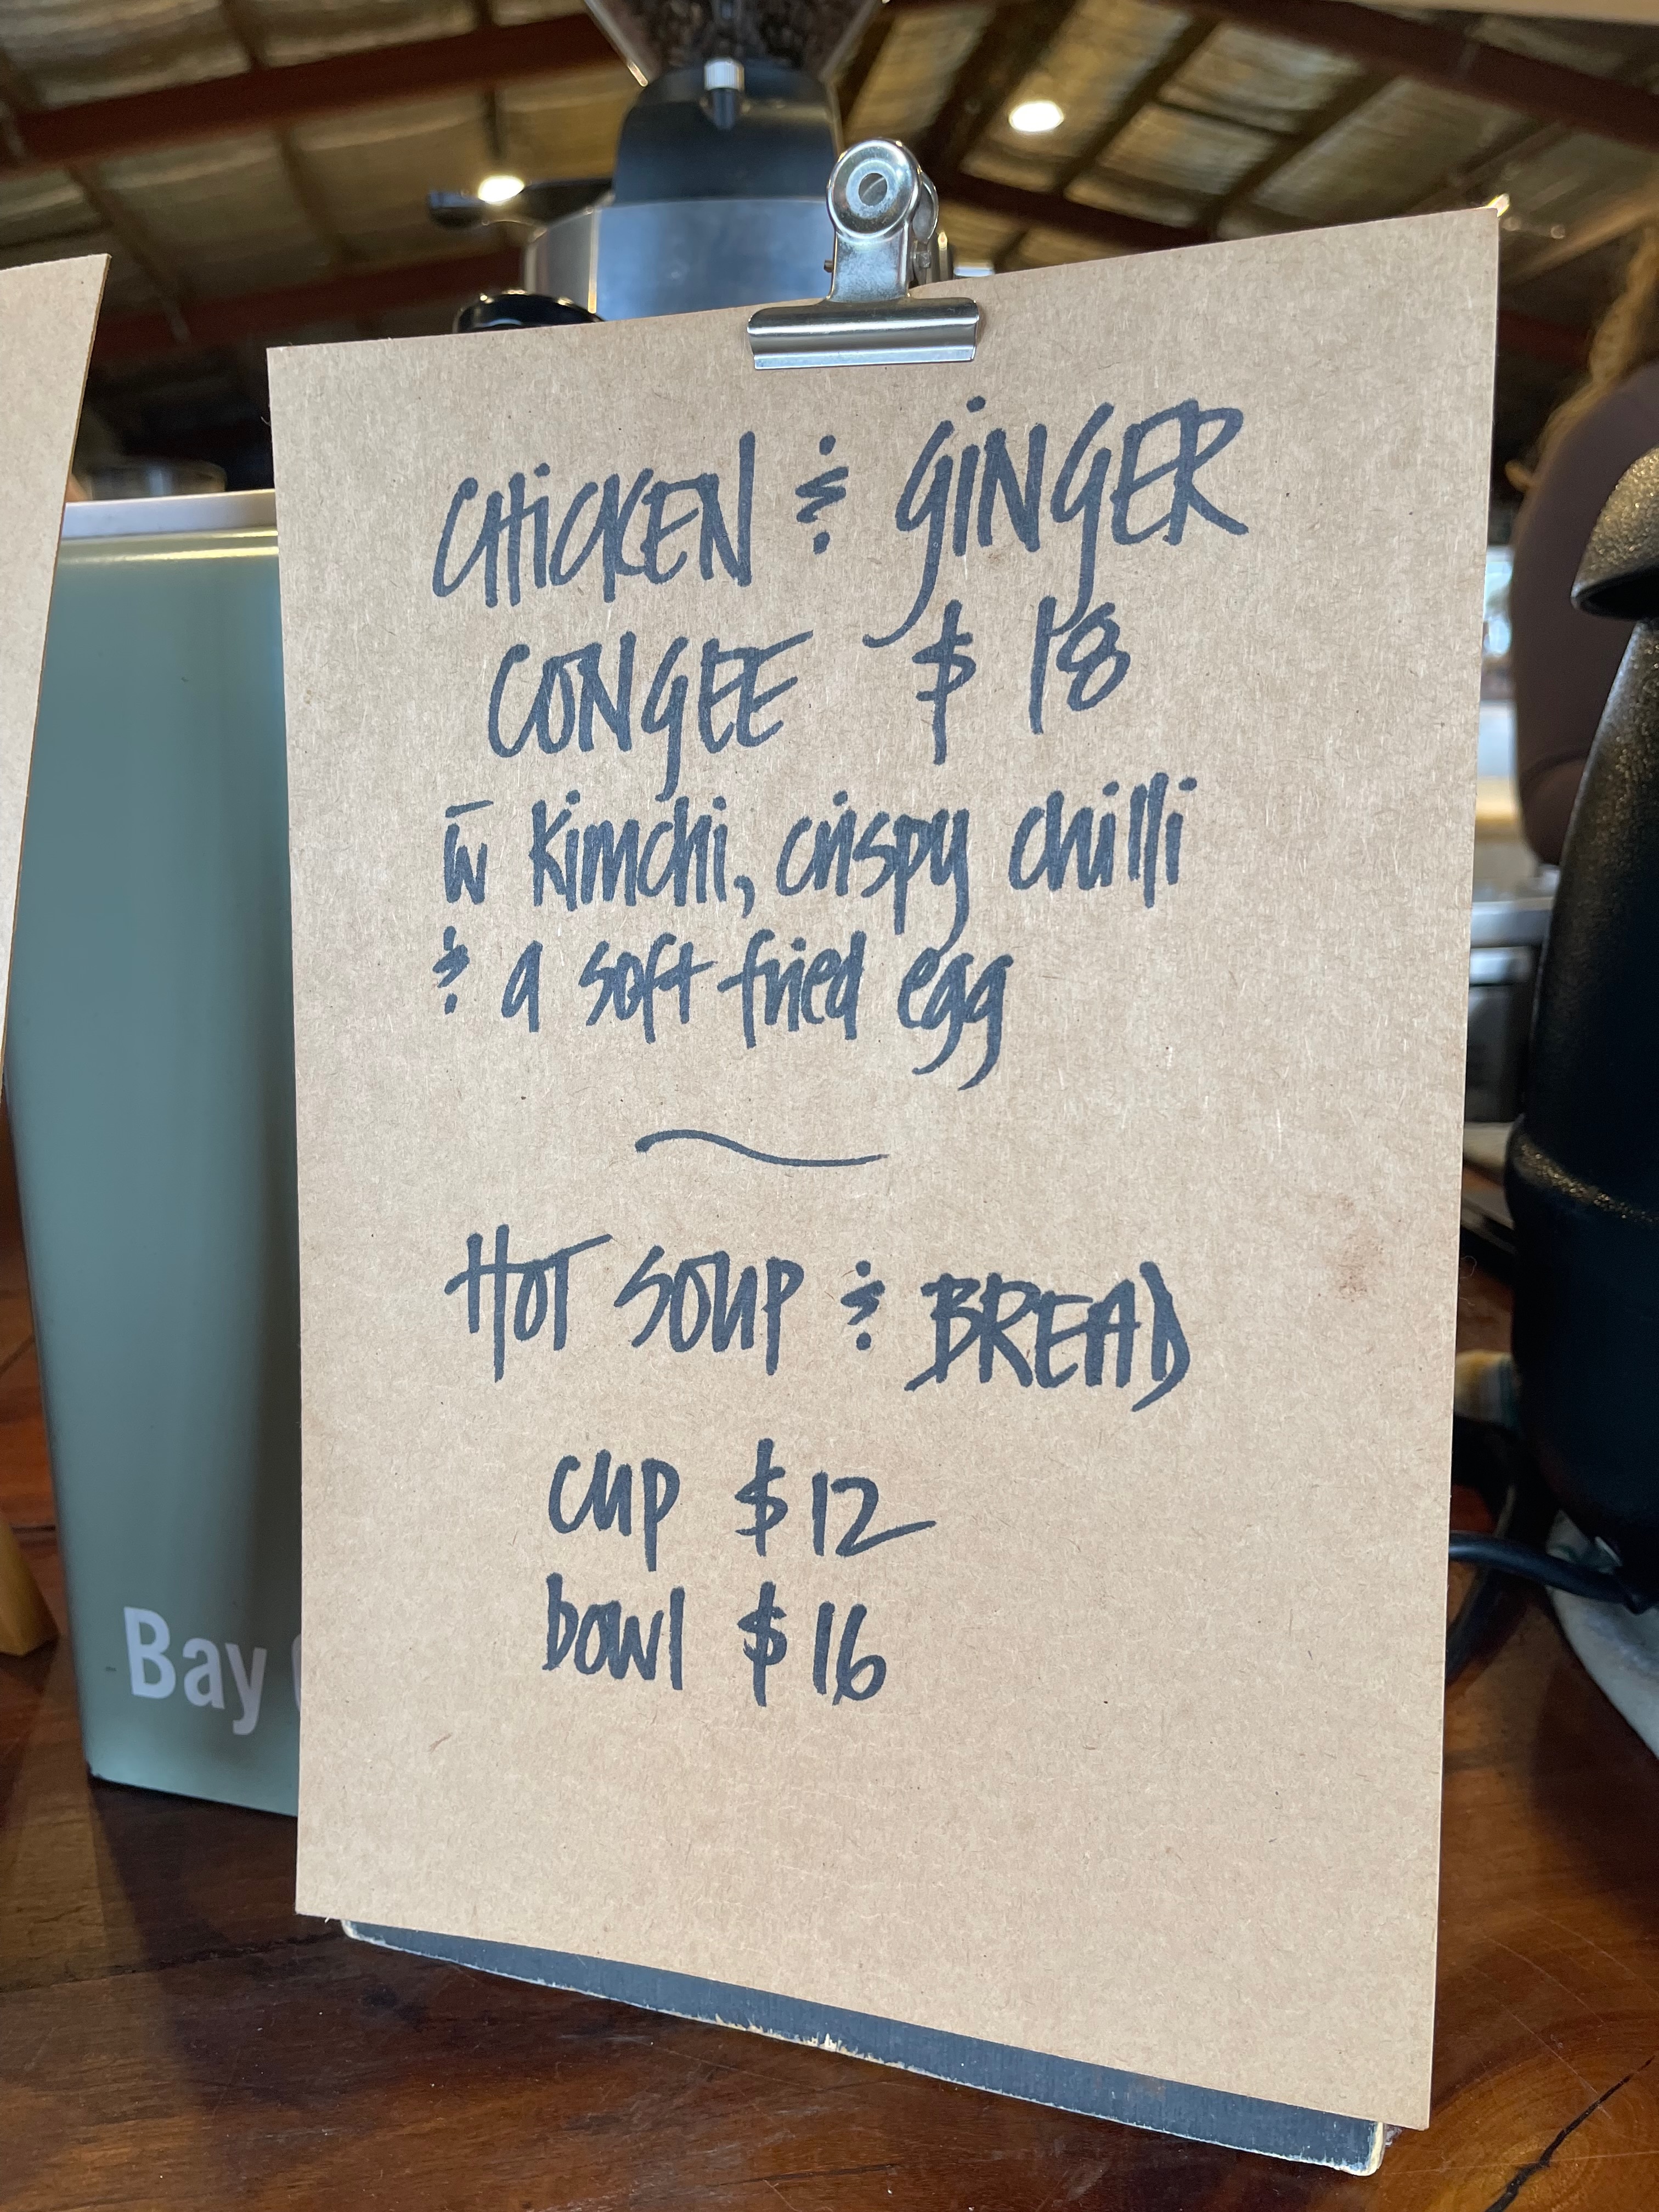 CHiCKEN & GiNGER
CONGEE $18
w̄ Kimchi, crispy chilli
& a soft fried egg
HOT SOUP & BREAD
cup $12
bowl $16
Bay